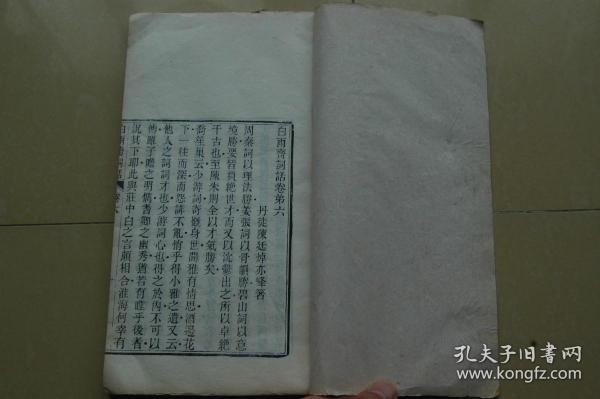 白雨齋詞話卷第六
丹徒陳廷焯亦峯著
周秦詞以理法勝姜張詞以骨韻勝碧山詞以意
境勝要皆負絕世才而又以沈鬱出之所以卓絕
千古也至陳朱則全以才氣勝矣
喬笙巢云少游詞寄慨身世閒雅有情思酒邊花
下一往而深而怨誹不亂悄乎得小雅之遺又云
他人之詞詞才也少游詞心也得之於內不可以
傳雖子瞻之明儁耆卿之幽秀猶若有瞠乎後者
況其下耶此與莊中白之言頗相合淮海何幸有
白雨齋詞話 卷六
孔夫子旧书网
www.kongfz.com